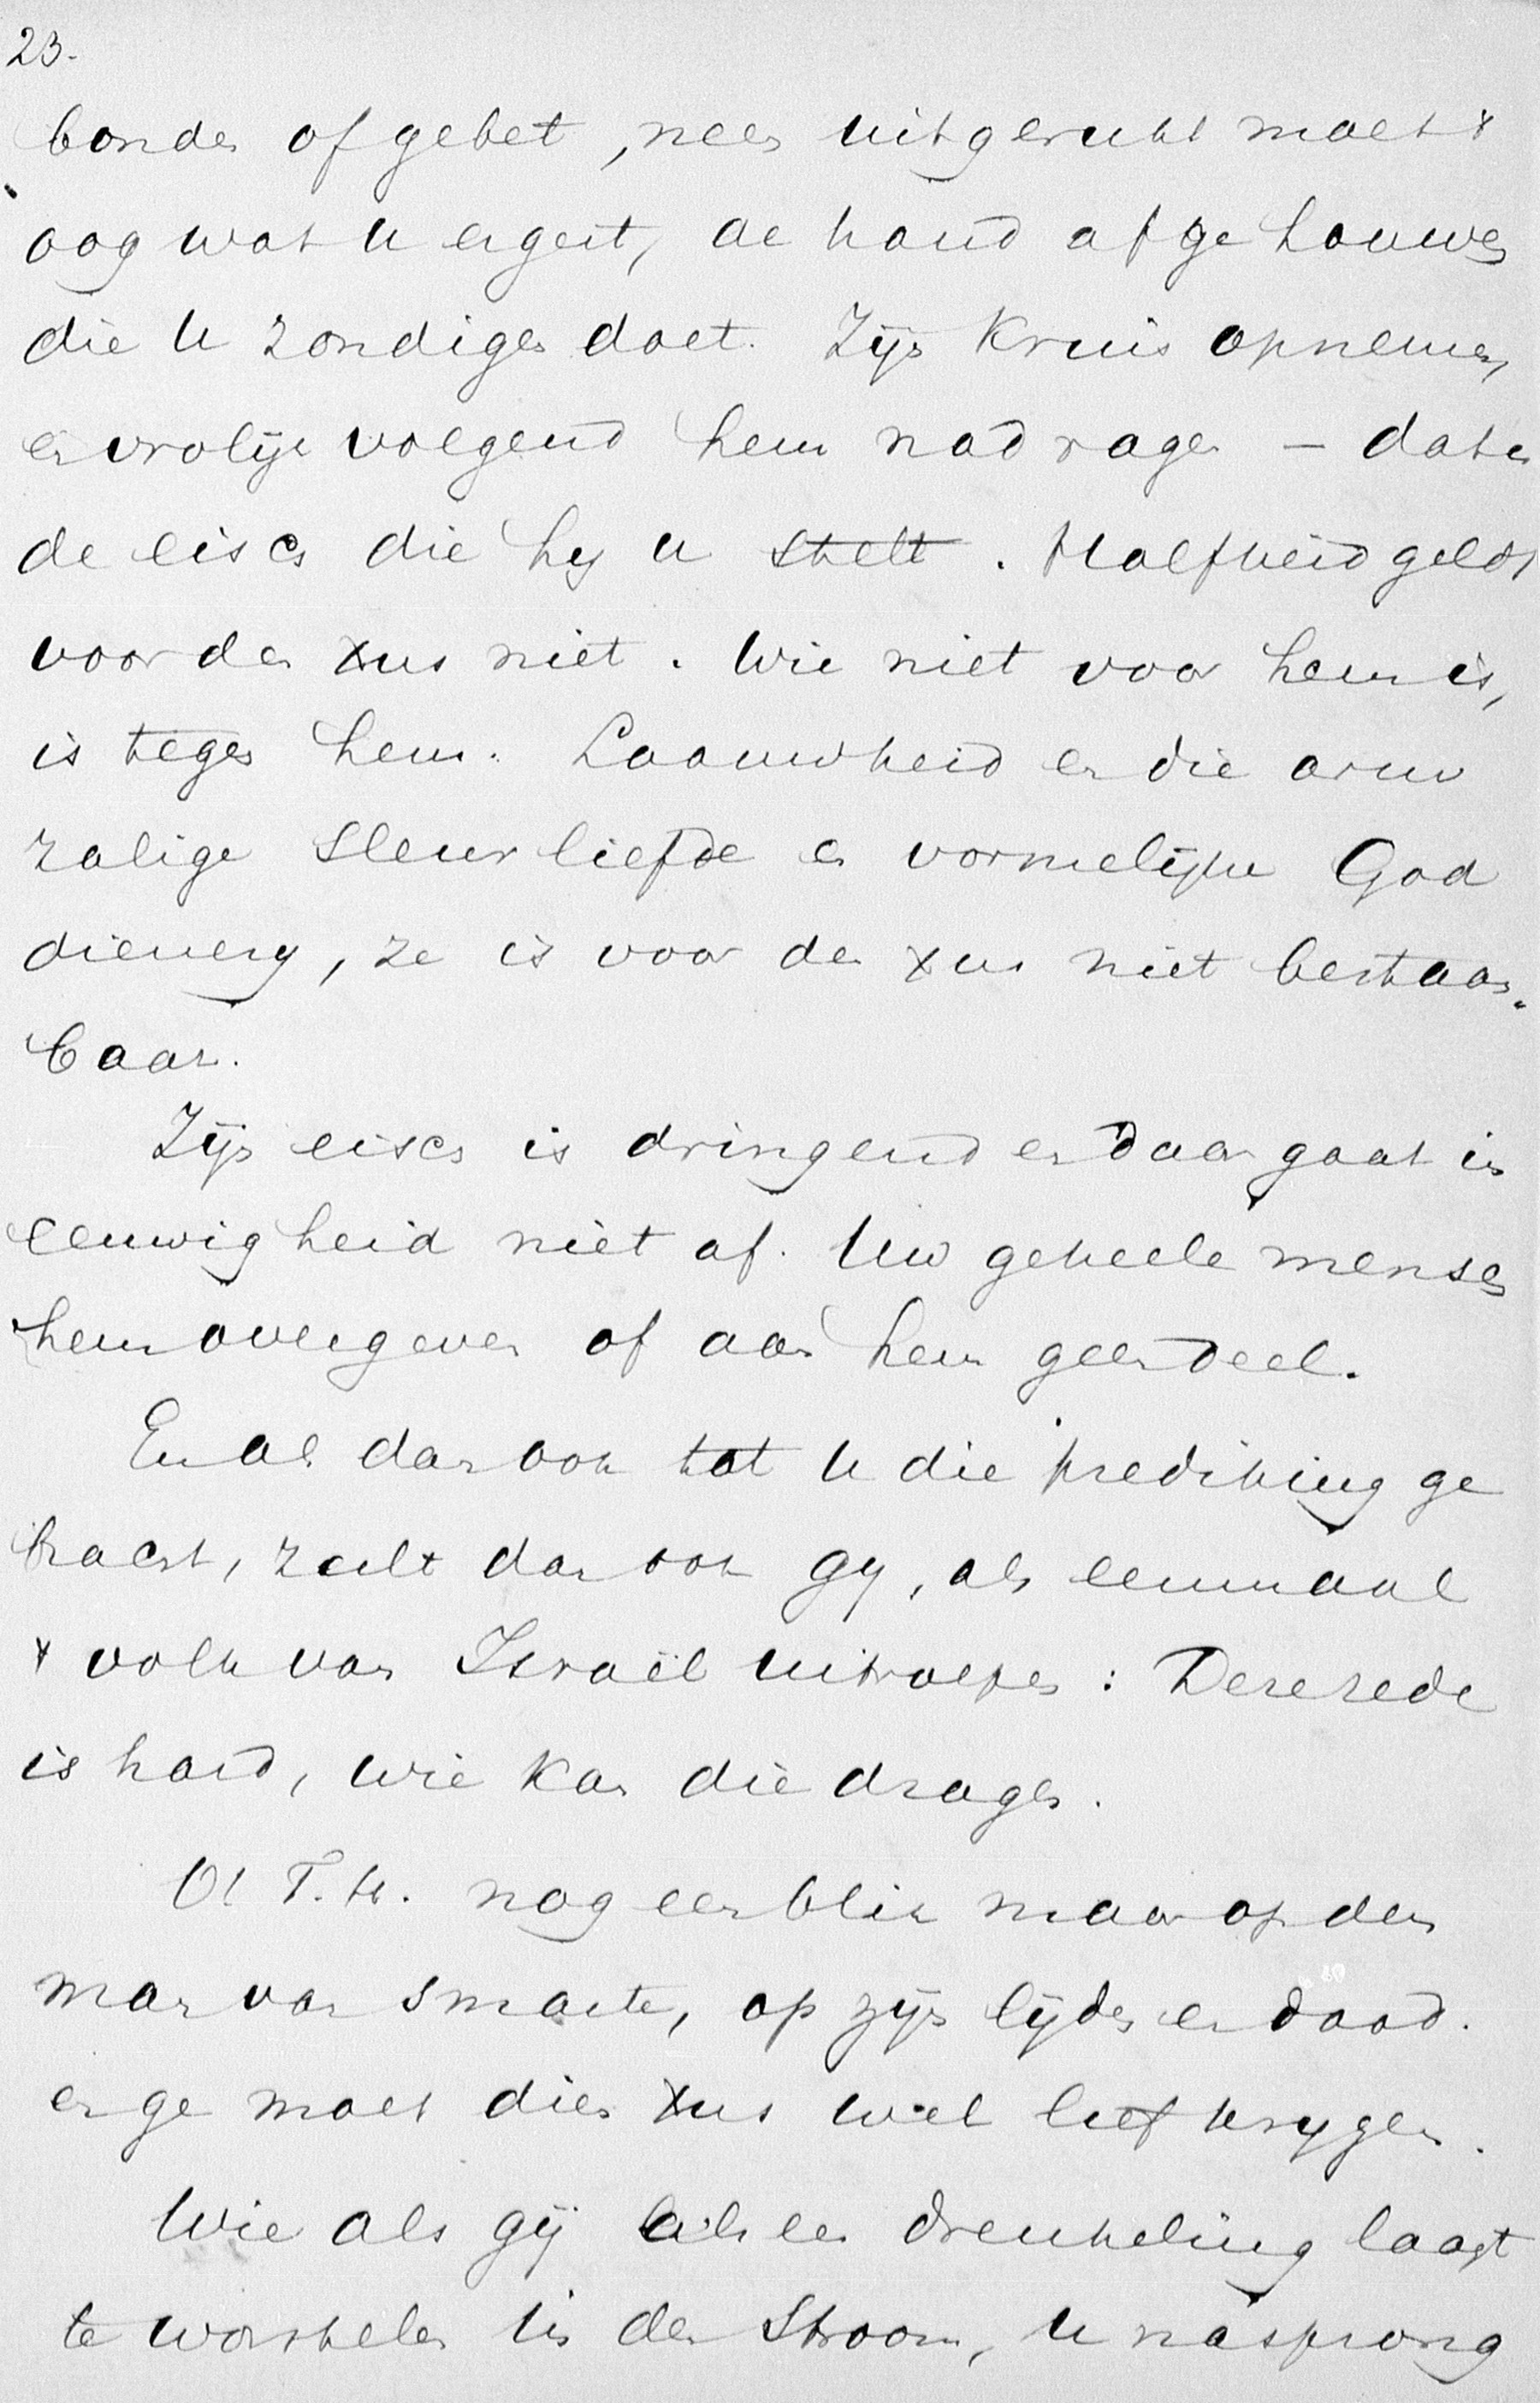 23.
bonden of gebet, neen uitgerukt moet 't
oog wat u ergert, de hand afgehouwen
die U zondigen doet. Zijn Kruis opnemen,
en vrolijk volgend hem nadragen – dat en
de eisch die hy u stelt. Halfheid geldt
voor den Xus niet. Wie niet voor hem is,
is tegen hem. Laauwheid en die arm
zalige sleur liefde en vormelijke God
dienery, ze is voor den Xus niet bestaan-
baar.
Zijn eisch is dringend en daar gaat in
eeuwigheid niet af. Uw geheele mensch
hem overgeven of aan hem geen deel.
En als dan ook tot U die prediking ge
bracht, zult dan ook gy, als eenmaal
't volk van Israël uitroepen: Deze rede
is hard, wie kan die dragen.
O! T. H. nog een blik maar op den
man van smarte, op zijn lijden en dood.
en ge moet dien Xus wel lief krygen.
Wie als gij als een drenkeling laagt
te worstelen in den Stroom, U nasprong